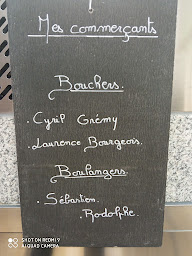 Mes commerçants
Bouchers.
. Cyril Grémy
. Laurence Bourgeois.
Boulangers
. Sébastien.
. Rodolphe.
SHOT ON REDMI 9
AI QUAD CAMERA